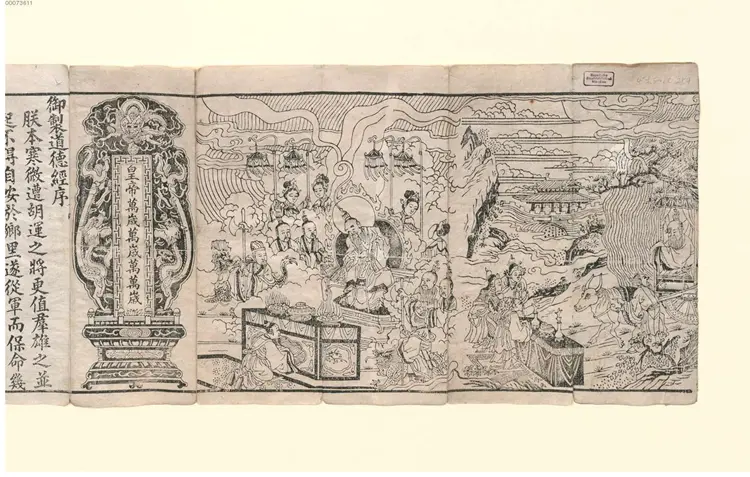 00073411
皇帝萬歲萬歲萬萬歲
御製道德經序
朕本寒微遭胡運之將更值羣雄之並
起不得自安於鄉里遂從軍而保命幾